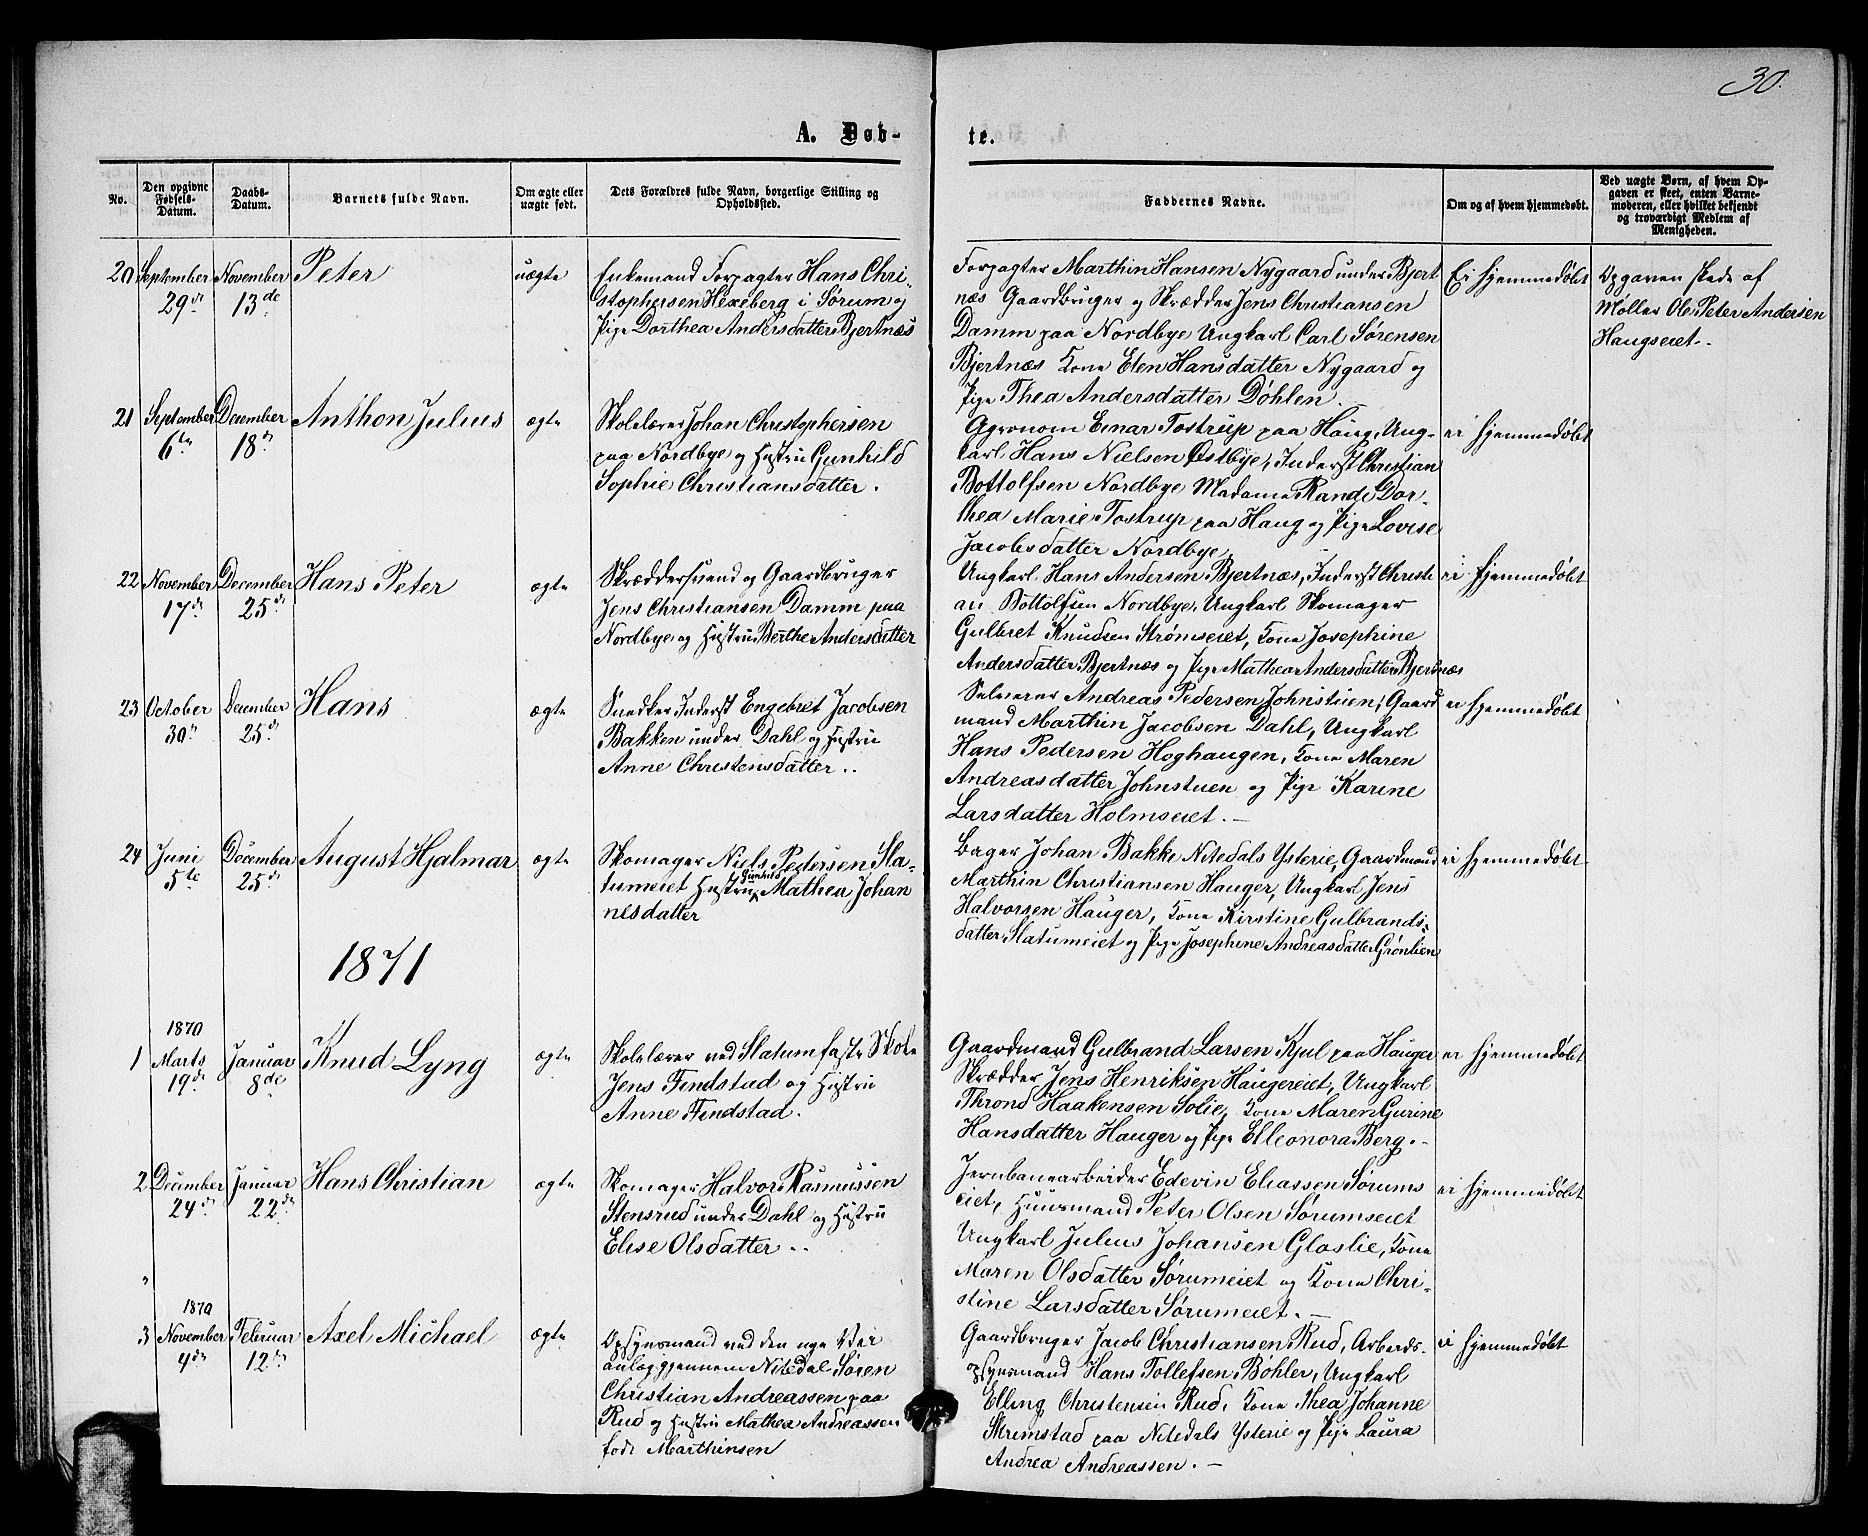 30.
A. Døb-
te.
No.
Den opgivne Fødsels-Datum.
Daabs-Datum.
Barnets fulde Navn.
Om ægte eller uægte født.
Dets Forældres fulde Navn, borgerlige Stilling og Opholdssted.
Faddernes Navne.
Om og af hvem hjemmedøbt.
Ved uægte Børn, af hvem Op-
gaven er skeet, enten Barne-
moderen, eller hvilket bekjendt
og troværdigt Medlem af
Menigheden.
20 September 29de November 13de Peter uægte
Enkemand Forpagter Hans Chri-
stophersen Hexeberg i Sørum og
Pige Dorthea Andersdatter Bjertnæs
Forpagter Marthin Hansen Nygaard under Bjert
næs Gaardbruger og Skrædder Jens Christiansen
Damm paa Nordbye Ungkarl Carl Sørensen
Bjertnæs Kone Elen Hansdatter Nygaard og
Pige Thea Andersdatter Døhlen.
Ei hjemmedøbt
Opgaven skede af
Møller Ole Peter Andersen
Haugseiet.
21 September 6te December 18de Anthon Julius ægte
Skolelærer Johan Christophersen
paa Nordbye og Hustru Gunhild
Sophie Christiansdatter.
Agronom Einar Tostrup paa Haug, Ung-
karl Hans Nielsen Østbye, Inderst Christian
Bottolfsen Nordbye Madame Randi Dor-
thea Marie Tostrup paa Haug og Pige Lovise
Jacobsdatter Nordbye.
ei hjemmedøbt
22 November 17de December 25de Hans Peter ægte
Skræddersvend og Gaardbruger
Jens Christiansen Damm paa
Nordbye og Hustru Berthe Andersdatter
Ungkarl Hans Andersen Bjertnæs, Inderst Christi
an Bottolfsen Nordbye, Ungkarl Skomager
Gulbret Knudsen Strømseiet, Kone Josephine
Andersdatter Bjertnæs og Pige Mathea Andersdatter Bjertnæs
ei hjemmedøbt
23 October 30te December 25de Hans ægte
Snedker Inderst Engebret Jacobsen
Bakken under Dahl og Hustru
Anne Christensdatter.
Selveier Andreas Pedersen Johnstuen, Gaard
mand Marthin Jacobsen Dahl, Ungkarl
Hans Pedersen Hoghaugen, Kone Maren
Andreasdatter Johnstuen og Pige Karine
Larsdatter Holmseiet.
ei hjemmedøbt
24 Juni 5te December 25de August Hjalmar ægte
Skomager Niels Pedersen Sla-
tumeiet Hustru Gunhild Mathea Johan
nesdatter
Bager Johan Bakke Nitedals Ysterie, Gaardmand
Marthin Christiansen Hauger, Ungkarl Jens
Halvorsen Hauger, Kone Kirstine Gulbrands-
datter Slatumeiet og Pige Josephine Andreasdatter Grønlien
ei hjemmedøbt
1871
1870
1 Marts 19de Januar 8de Knud Lyng ægte
Skolelærer ved Slatum faste Skole
Jens Findstad og Hustru
Anne Findstad.
Gaardmand Gulbrand Larsen Kjul paa Hauger
Skrædder Jens Henriksen Haugereiet, Ungkarl
Thrond Haakensen Solie, Kone Maren Gurine
Hansdatter Hauger og Pige Elleonora Berg.
ei hjemmedøbt
2 December 24de Januar 22de Hans Christian ægte
Skomager Halvor Rasmussen
Stensrud under Dahl og Hustru
Elise Olsdatter.
Jernbanearbeider Edevin Eliassen Sørums
eiet, Huusmand Peter Olsen Sørumseiet
Ungkarl Julius Johansen Gloslie, Kone
Maren Olsdatter Sørumeiet og Kone Chri-
stine Larsdatter Sørumeiet.
ei hjemmedøbt
1870
3 November 4de Februar 12te Axel Michael ægte
Opsynsmand ved den nye Vei
anlæg gjennem Nitedal Søren
Christian Andreassen paa
Rud og Hustru Mathea Andreassen
født Marthinsen
Gaardbruger Jacob Christiansen Rud, Arbeids-
opsynsmand Hans Tollefsen Bøhler, Ungkarl
Elling Christensen Rud, Kone Thea Johanne
Skremstad paa Nitedals Ysterie og Pige Laura
Andrea Andreassen.
ei hjemmedøbt